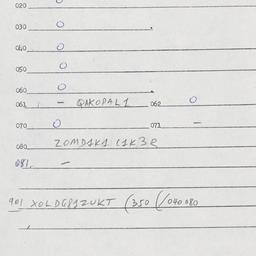 020 O
030 O
040 O
050 O
060 O
061 - QAKOPAL1 062 O
070 O 071 -
080 ZOMD1K1 C1K3R
081. -
901 XOLDGP1ZUKT (350 (/040.080